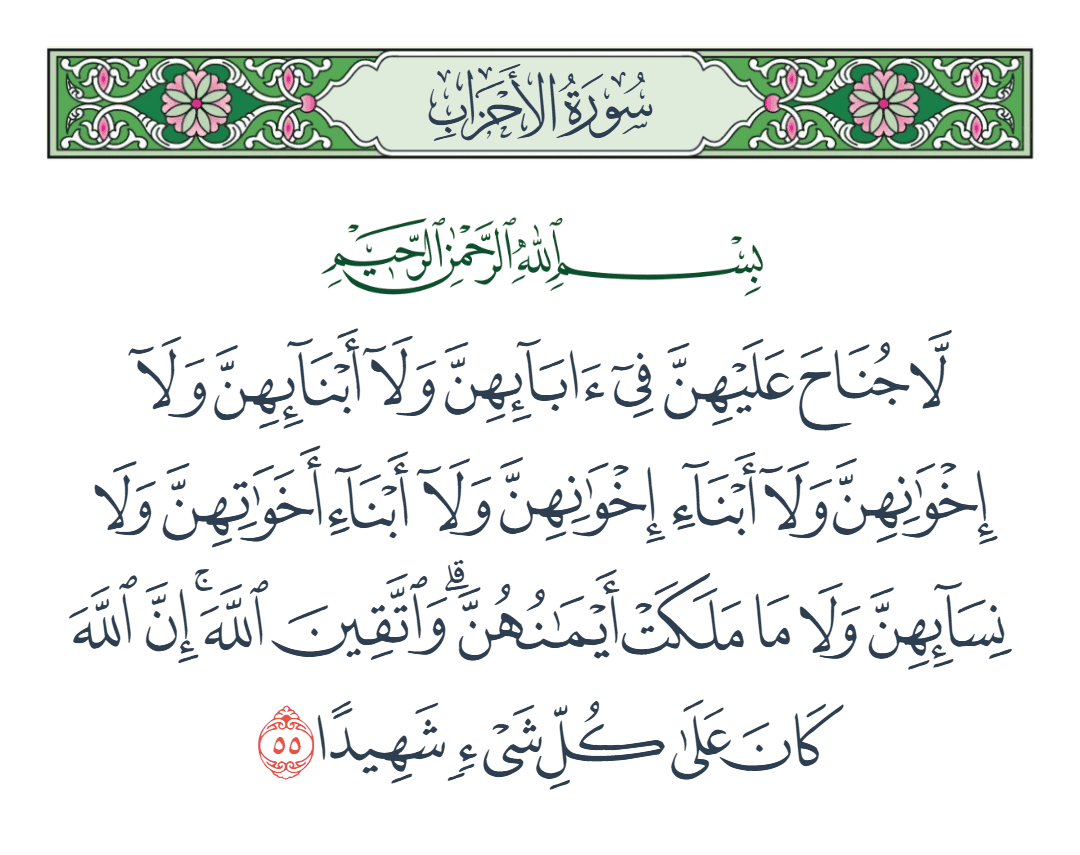 سُورَةُ الأَحْزَابِ
بِسْمِ ٱللَّهِ ٱلرَّحْمَٰنِ ٱلرَّحِيمِ
لَّا جُنَاحَ عَلَيْهِنَّ فِىٓ ءَابَآئِهِنَّ وَلَآ أَبْنَآئِهِنَّ وَلَآ
إِخْوَٰنِهِنَّ وَلَآ أَبْنَآءِ إِخْوَٰنِهِنَّ وَلَآ أَبْنَآءِ أَخَوَٰتِهِنَّ وَلَا
نِسَآئِهِنَّ وَلَا مَا مَلَكَتْ أَيْمَـٰنُهُنَّ ۗ وَٱتَّقِينَ ٱللَّهَ ۚ إِنَّ ٱللَّهَ
كَانَ عَلَىٰ كُلِّ شَىْءٍ شَهِيدًا ٥٥